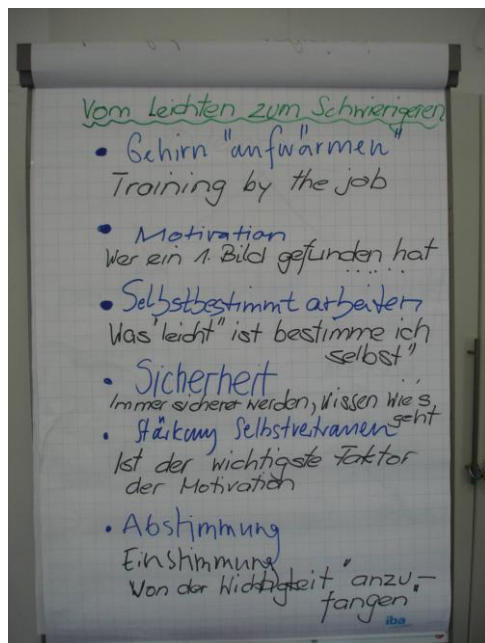 Vom Leichten zum Schwierigeren
• Gehirn "aufwärmen"
Training by the job
• Motivation
Wer ein 1. Bild gefunden hat
.....
• Selbstbestimmt arbeiten
Was "leicht" ist bestimme ich
selbst"
• Sicherheit
Immer sicherer werden, wissen wie's
geht
• Stärkung Selbstvertrauen
Ist der wichtigste Faktor
der Motivation
• Abstimmung
Einstimmung
Von der Wichtigkeit "anzu-
fangen"
iba